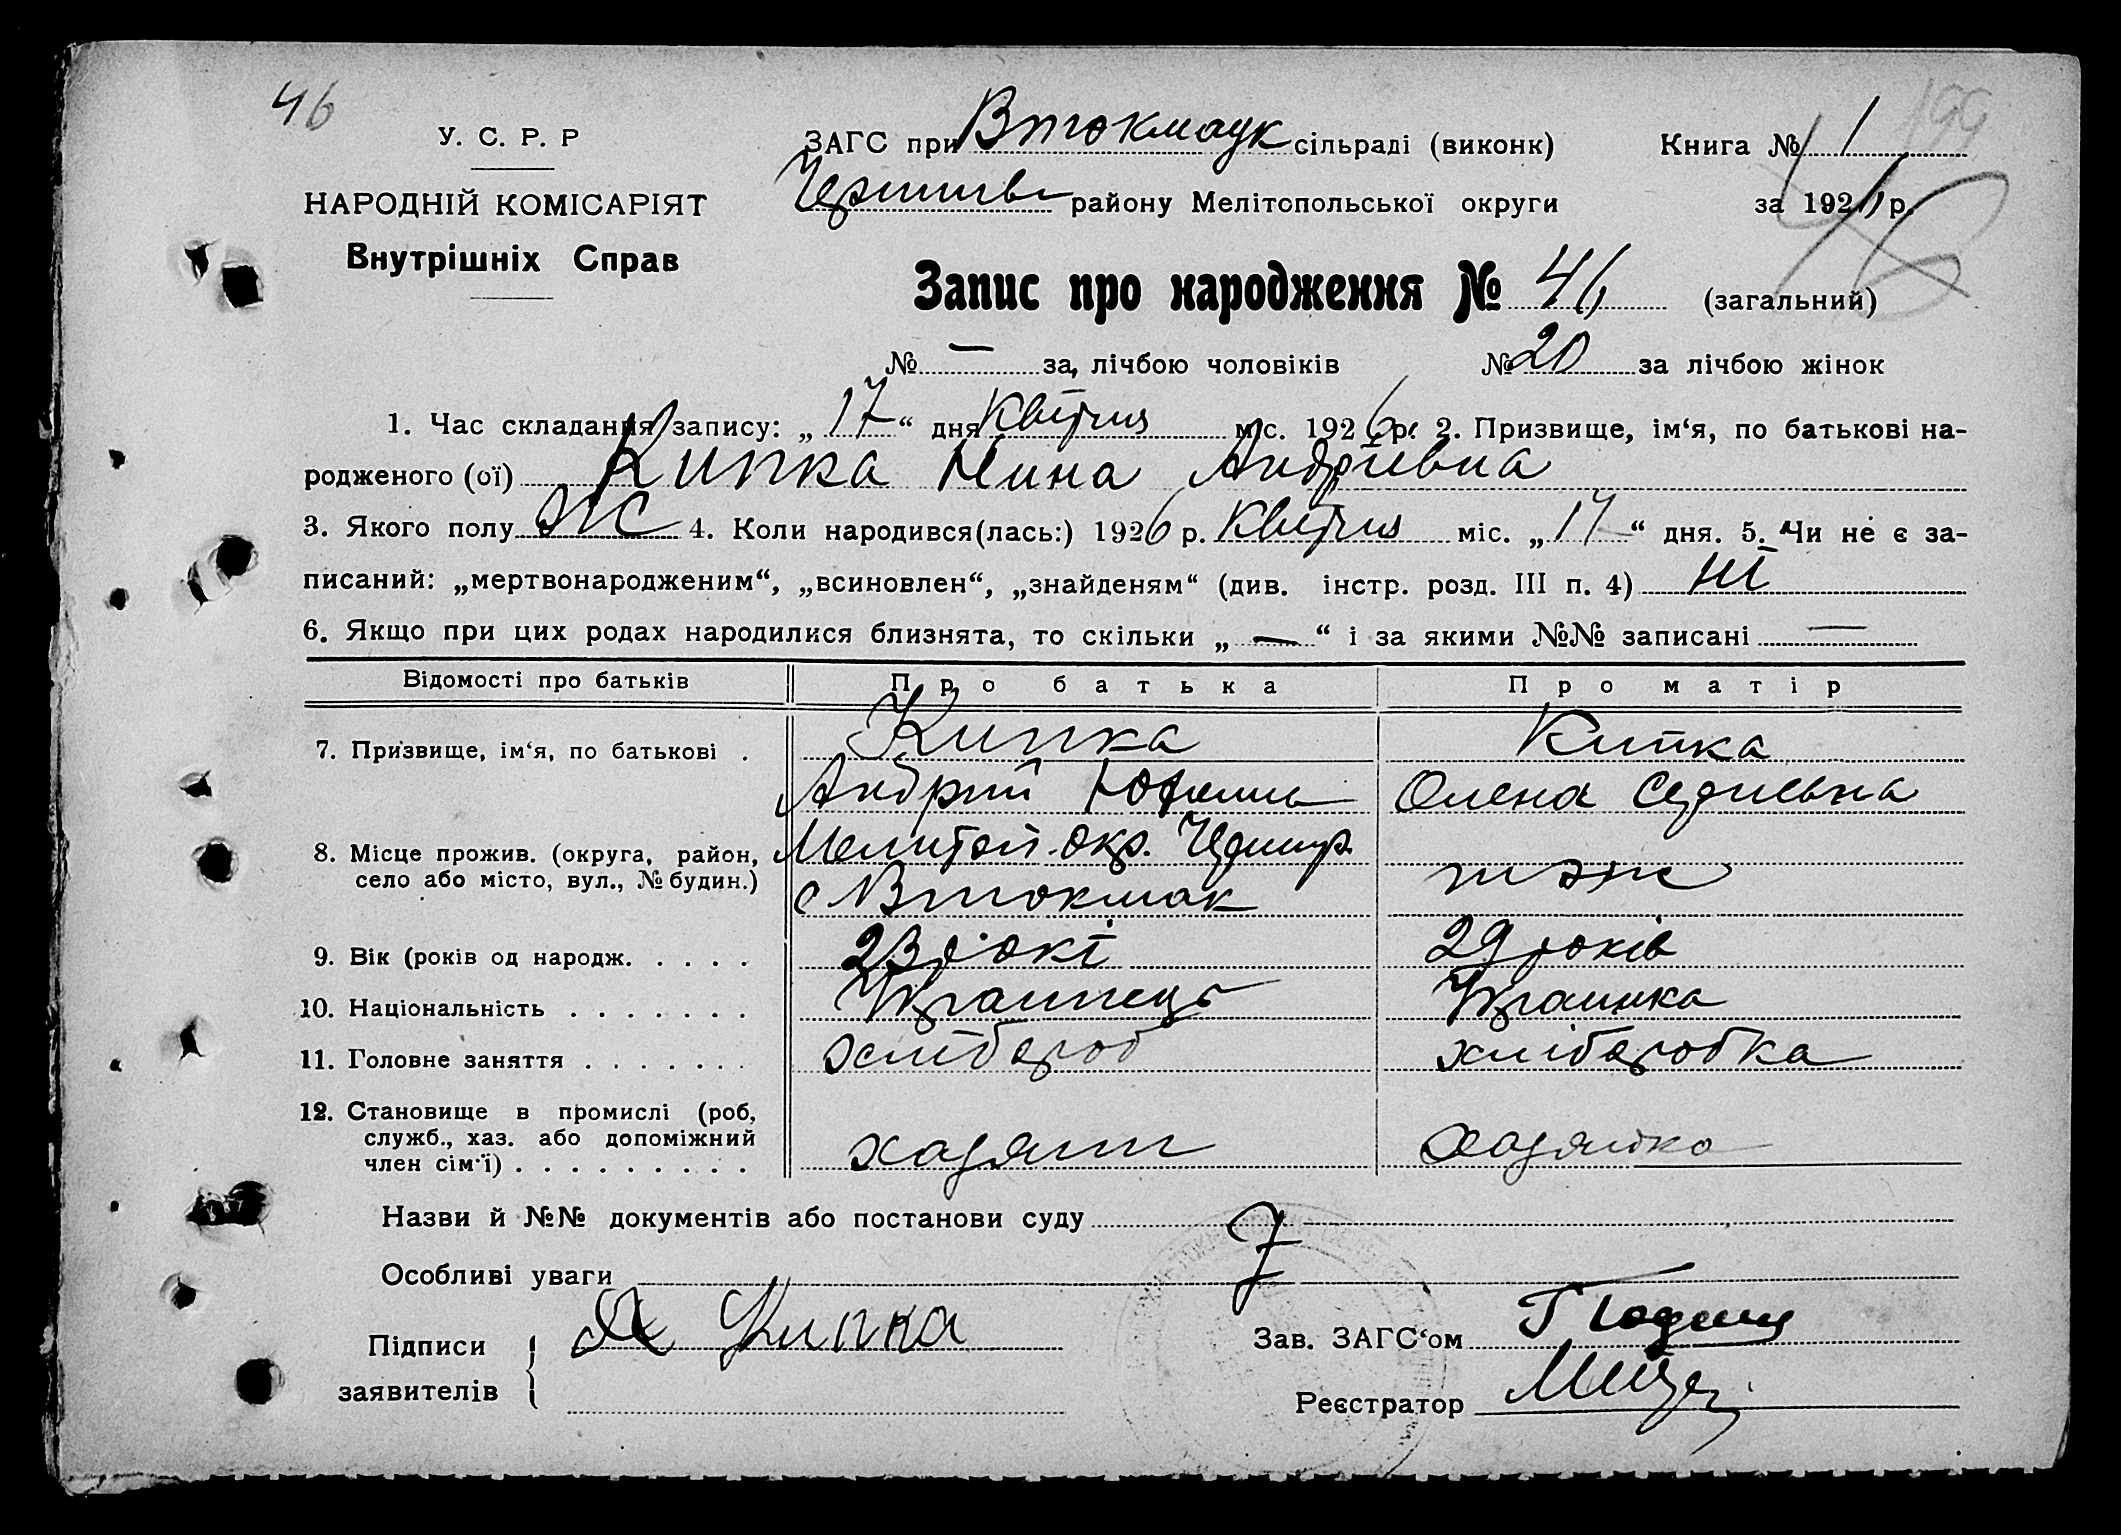 46
У. С. Р. Р
НАРОДНІЙ КОМІСАРІЯТ
Внутрішніх Справ
ЗАГС при Втокмаук сільраді (виконк)
району Мелітопольської округи
Книга № 1
199
за 192 р.
Запис про народження № 46 (загальний)
№ — за, лічбою чоловіків № 20 за лічбою жінок
1. Час складання запису: „ 17 “ дня Квітня міс. 1926 р. 2. Призвище, ім‘я, по батькові на-
родженого (ої) Кипка Нина Андріівна
3. Якого полу ж 4. Коли народився(лась:) 1926 р. Квітня міс. „ 17 “ дня. 5. Чи не є за-
писаний: „мертвонародженим“, „всиновлен“, „знайденям“ (див. інстр. розд. III п. 4) ні
6. Якщо при цих родах народилися близнята, то скільки „ — “ і за якими №№ записані —
Відомості про батьків Про батька Про матір
7. Призвище, ім‘я, по батькові . Кипка Кипка
Андрий Олена
8. Місце прожив. (округа, район, Мелітоп. окр.
село або місто, вул., № будин.) с Втокмак тож
9. Вік (років од народж. . . . . 23 рокі 29 років
10. Національність . . . . . . . Украинець Украинка
11. Головне заняття . . . . . . . хлібороб хліборобка
12. Становище в промислі (роб,
служб., хаз. або допоміжний
член сім‘ї) . . . . . . . . . хазяін хазяйка
Назви й №№ документів або постанови суду
Особливі уваги
Підписи
заявителів
А Кипка
Зав. ЗАГС‘ом
Реєстратор